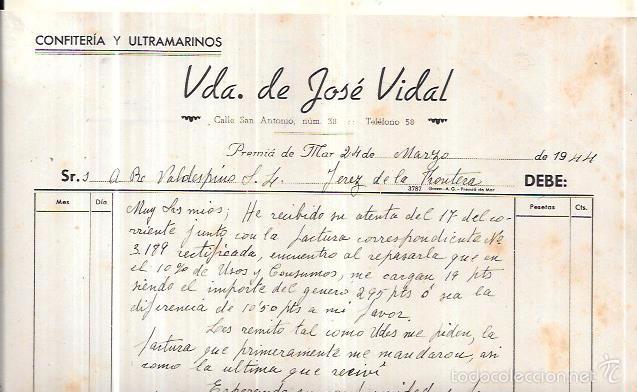 CONFITERÍA Y ULTRAMARINOS
Vda. de José Vidal
Calle San Antonio, núm. 38 :: Teléfono 58
Premiá de Mar 24 de Marzo de 1944
Sr.s A Rc Valdespino S. L. Jerez de la Frontera DEBE:
3787 Graus.-A. G.-Premiá de Mar
Mes Día Pesetas Cts.
Muy Srs mios; He recibido su atenta del 17 del co-
rriente junto con la factura correspondiente Nº
3.189 rectificada, encuentro al repasarla que en
el 10% de Usos y Consumos, me cargan 19 pts
siendo el importe del genero 295 pts ó sea la
diferencia de 10'50 pts a mi favor.
Les remito tal como Udes me piden, la
factura que primeramente me mandaron, asi
como la ultima que recivi
Esperando
todocoleccion.net